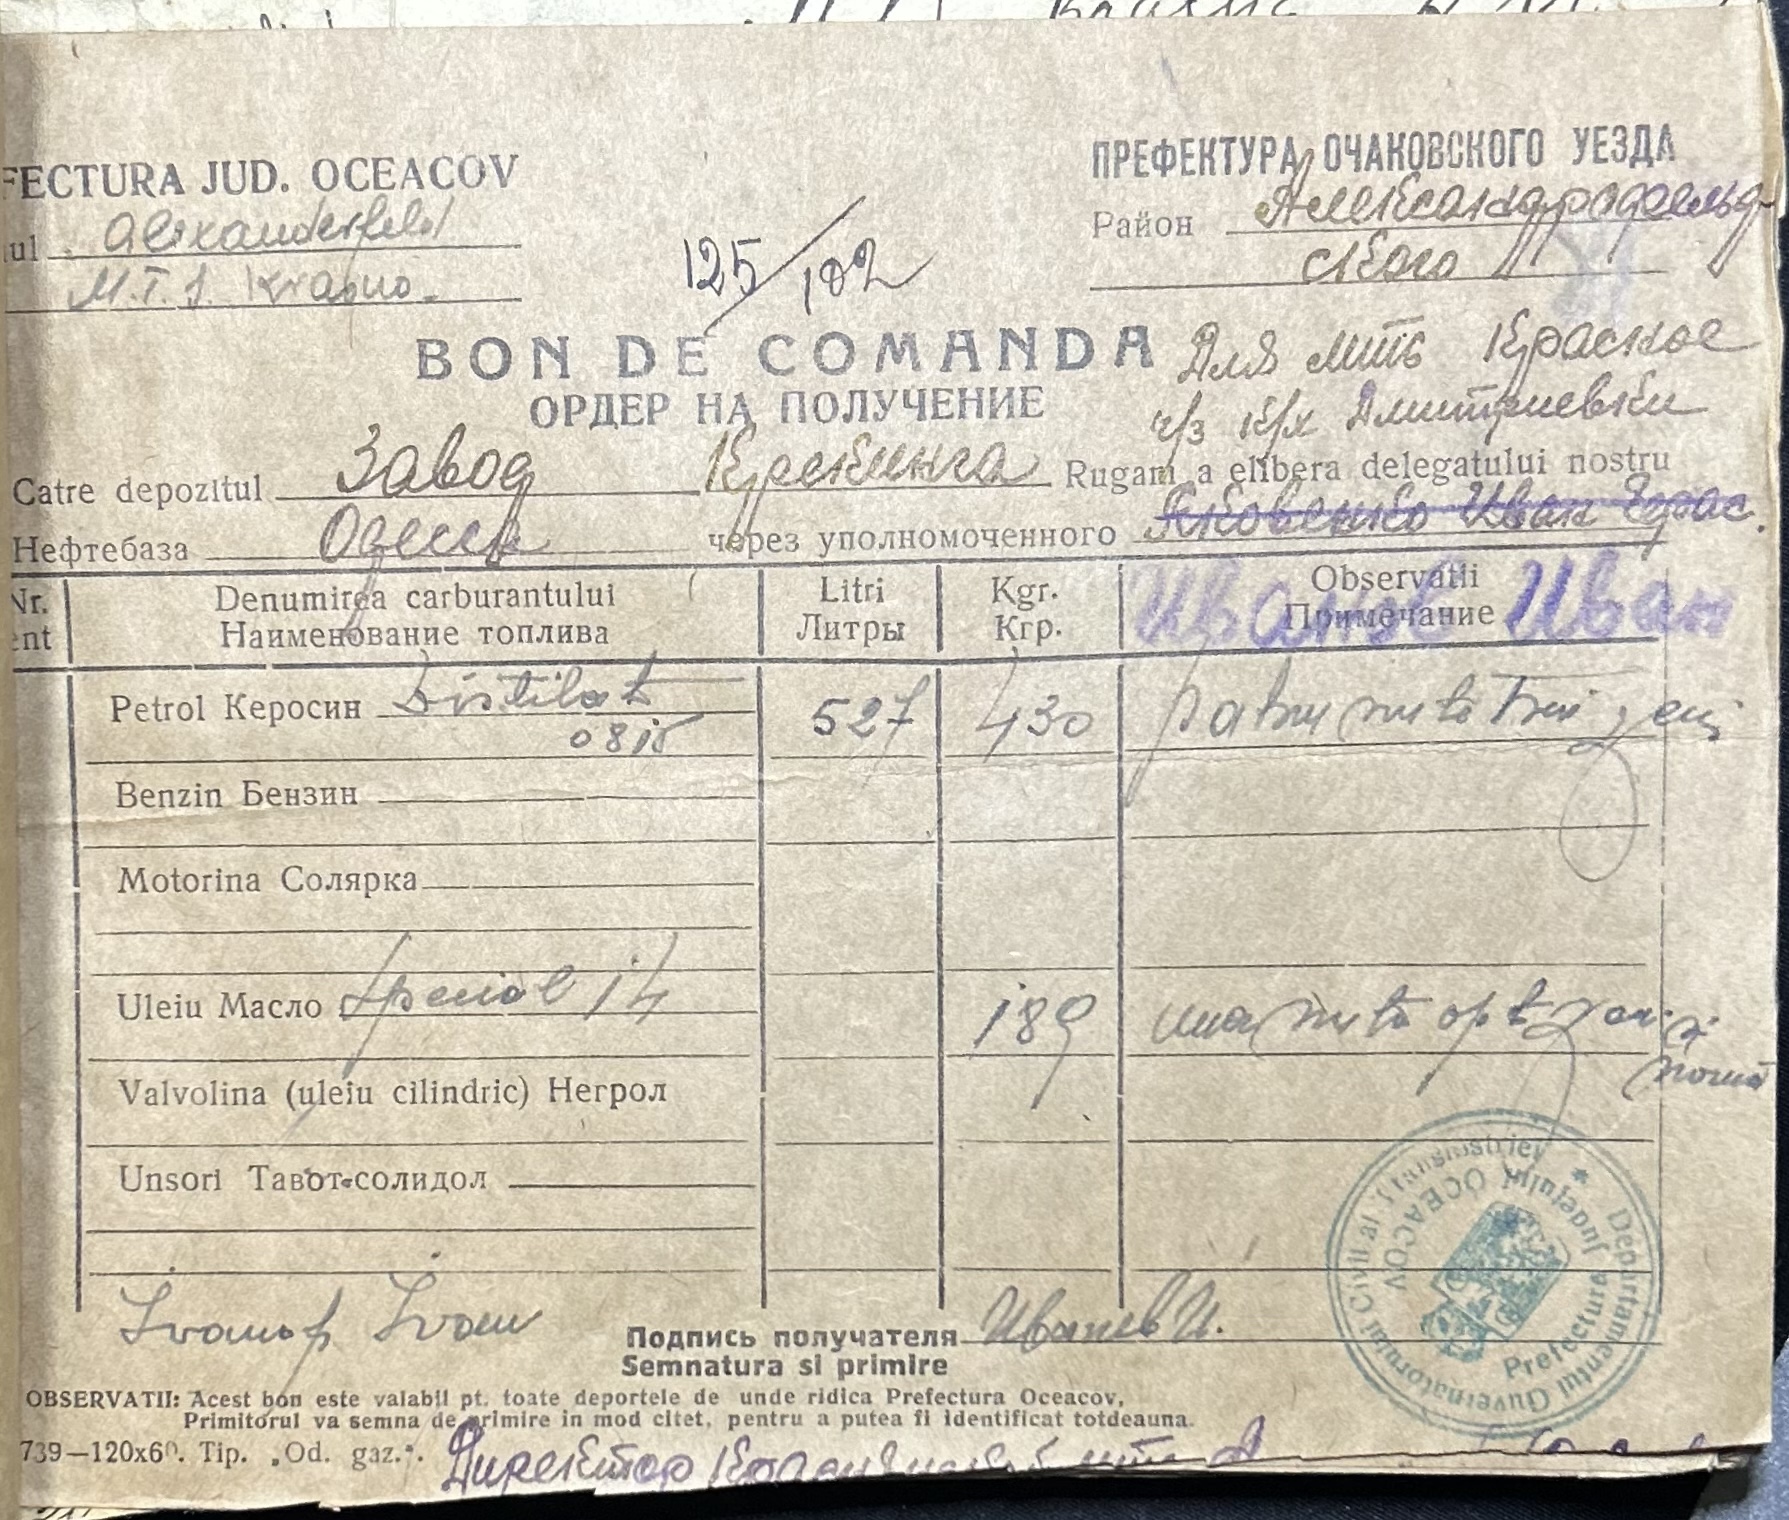 FECTURA JUD. OCEACOV
ul Alexanderfeld
M.T.S. Krasno.
125/102
ПРЕФЕКТУРА ОЧАКОВСКОГО УЕЗДА
Район Александрфельд-
ского
BON DE COMANDA
ОРДЕР НА ПОЛУЧЕНИЕ
Для мтс Красное
ч/з к/х Дмитриевки
Catre depozitul Завод Крекинга Rugam a elibera delegatului nostru
Нефтебаза Одесса через уполномоченного Яковенко Иван Герас.
Иванов Иван
Nr. Denumirea carburantului Litri Kgr. Observatii
ent Наименование топлива Литры Кгр. Примечание
Petrol Керосин Distilat 527 430 patru sute trei zeci
0815
Benzin Бензин
Motorina Солярка
Uleiu Масло Special 14 189 una suta opt zeci si
noua
Valvolina (uleiu cilindric) Негрол
Unsori Тавот-солидол
Ivanof Ivan
Подпись получателя Иванов И.
Semnatura si primire
Departamentul Guvernatorului Civil al Transnistriei
Prefectura Județului OCEACOV
OBSERVATII: Acest bon este valabil pt. toate deportele de unde ridica Prefectura Oceacov,
Primitorul va semna de primire in mod citet, pentru a putea fi identificat totdeauna.
739—120x60. Tip. „Od. gaz.".
Директор